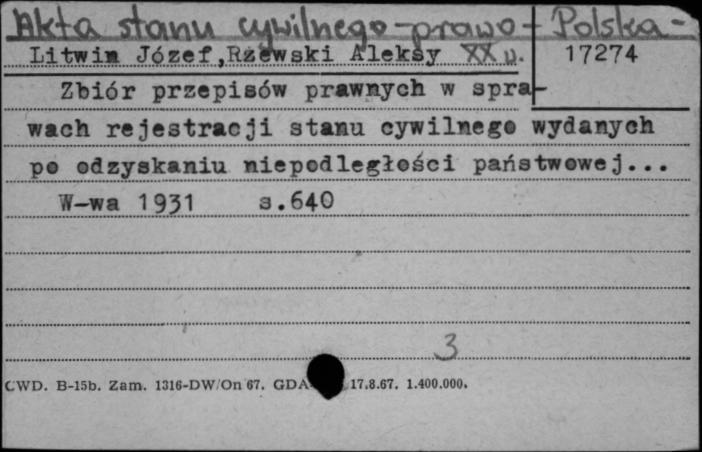 Akta stanu cywilnego - prawo - Polska -
Litwin Józef,Rżewski Aleksy XX w. 17274
Zbiór przepisów prawnych w spra-
wach rejestracji stanu cywilnego wydanych
po odzyskaniu niepodległości państwowej...
W-wa 1931 s.640
3
CWD. B-15b. Zam. 1316-DW/On 67. GDA 17.8.67. 1.400.000.